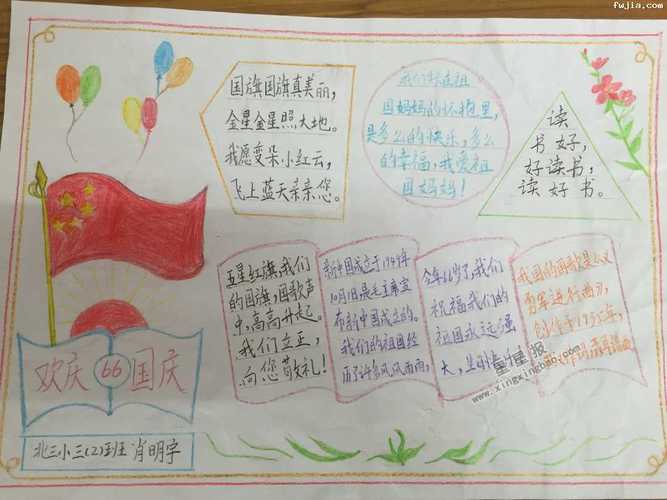 fwjia.com
国旗国旗真美丽，
金星金星照大地。
我愿变朵小红云，
飞上蓝天亲亲您。
我们在祖
国妈妈的怀抱里，
是多么的快乐，多么
的幸福，我爱祖
国妈妈！
读
书好，
好读书，
读好书。
五星红旗，我们
的国旗，国歌声
中，高高升起。
我们立正，
向您敬礼！
新中国成立于1949年
10月1日，是毛主席宣
布新中国成立的。
我们的祖国经
历了许多风风雨雨，
今年66岁了，我们
祝福我们的
祖国永远强
大，
我国的国歌是《义
勇军进行曲》，
创作于1935年，
欢庆 66 国庆
星星报
www.xingxingbao.com
北三小三(2)班 肖明宇